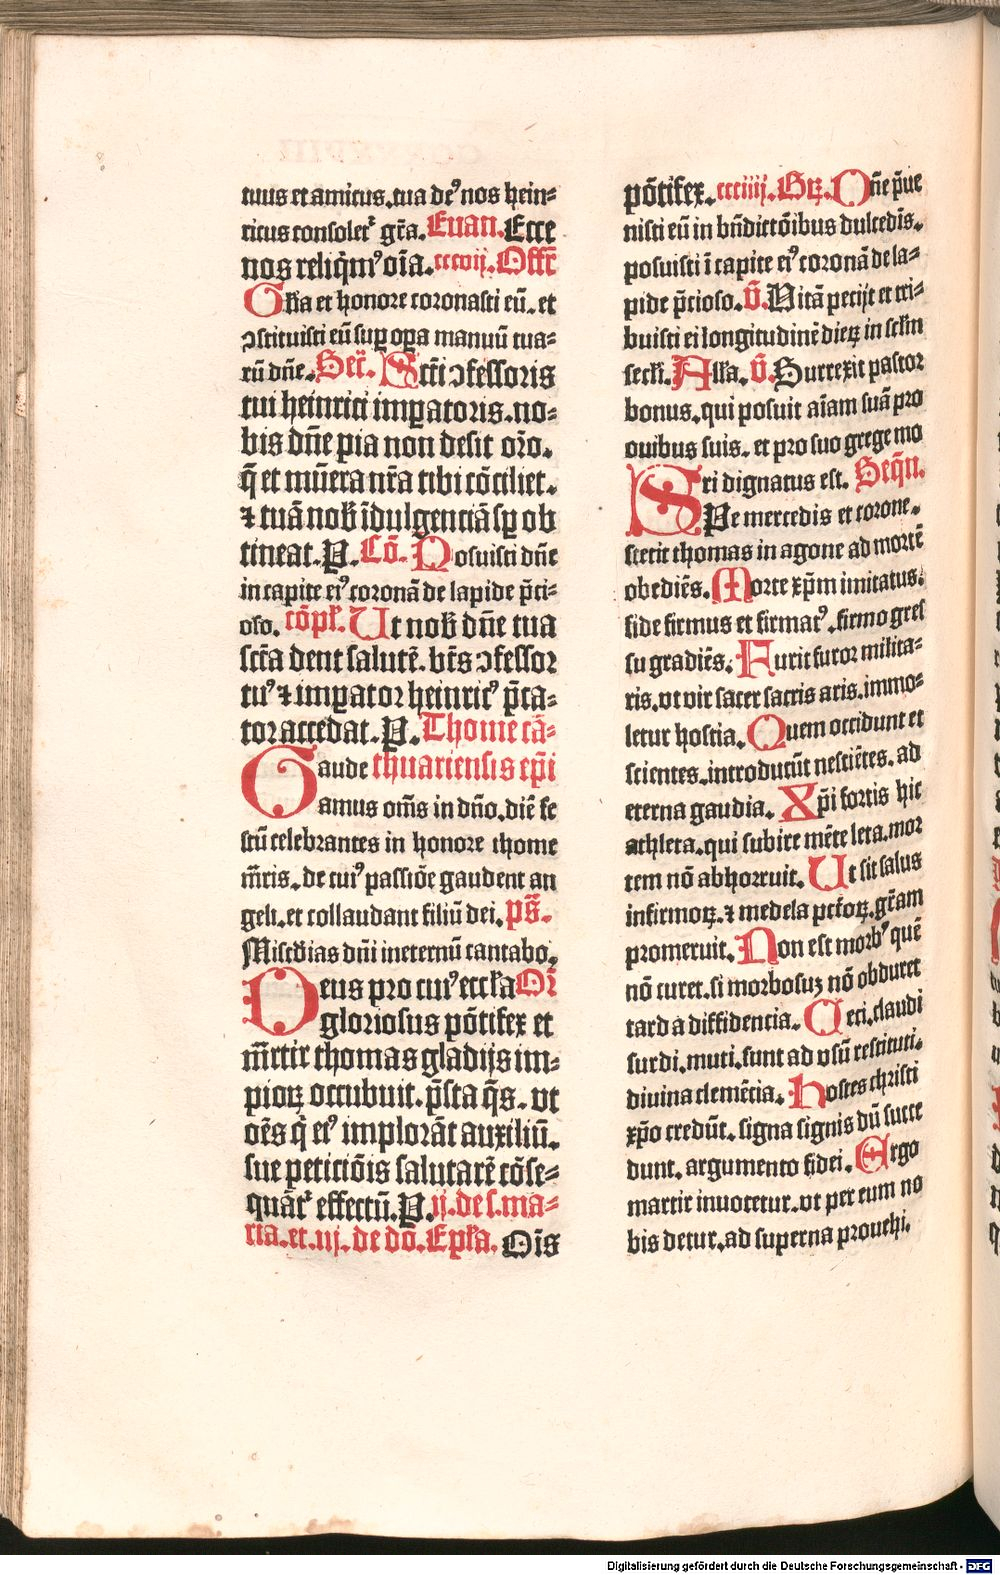 tuus et amicus. tua deꝰ nos hein⸗
ricus consoletᷣ gr̄a. Euan. Ecce
nos reliq̄mꝰ oı̄a. cccvij. Offr̄
Gl̄ia et honore coronasti eū. et
ↄstituisti eū suꝑ oꝑa manuū tua⸗
rū dn̄e. Secͬ. Sctī ↄfessoris
tui heinrici imꝑatoris. no⸗
bis dn̄e pia non desit or̄o.
q̄ et mūera nr̄a tibi cōciliet.
⁊ tuā nob̄ īdulgenciā sꝑ ob
tineat. P. Cō. Posuisti dn̄e
in capite eiꝰ coronā de lapide p̄ci⸗
oso. cōpl̄. Ut nob̄ dn̄e tua
sctā dent salutē. bt̄s ↄfessor
tuꝰ ⁊ imꝑator heinricꝰ p̄ca⸗
tor accedat. P. Thome cā⸗
Gaude thuariensis ep̄i
amus om̄s in dn̄o. diē fe
stū celebrantes in honore thome
m̄ris. de cuiꝰ passiōe gaudent an
geli. et collaudant filiū dei. ps̄.
Misc̄dias dn̄i ineternū cantabo.
Deus pro cuiꝰ eccl̄ia Or̄
gloriosus pōtifex et
m̄rtir thomas gladijs im⸗
pioꝝ occubuit. p̄sta q̄s. vt
oēs q̄ eiꝰ implorāt auxiliū.
sue peticiōis salutarē cōse⸗
quātᷣ effectū. P. ij. de s. ma⸗
ria. et. iij. de dō. Ep̄la. Oīs
pōtifex. ccciiij. Gꝝ. Dn̄e p̄ue
nisti eū in bn̄dictōibus dulcedīs.
posuisti ī capite eiꝰ coronā de la⸗
pide p̄cioso. v̄. Vitā pecijt et tri⸗
buisti ei longitudinē dieꝝ in sclm̄
secl̄i. All̄a. v̄. Surrexit pastor
bonus. qui posuit aīam suā pro
ouibus suis. et pro suo grege mo
ri dignatus est. Seq̄n.
SPe mercedis et corone.
stetit thomas in agone ad mortē
obediēs. Morte xp̄m imitatus.
fide firmus et firmatꝰ. firmo gres
su gradiēs. Furit furor milita⸗
ris. vt vir sacer sacris aris. immo⸗
letur hostia. Quem occidunt et
scientes. introducūt nesciētes. ad
eterna gaudia. Xp̄i fortis hic
athleta. qui subire mēte leta. mor
tem nō abhorruit. Ut sit salus
infirmoꝝ. ⁊ medela pctōꝝ. gr̄am
promeruit. Non est morbꝰ quē
nō curet. si morbosuȝ nō obduret
tarda diffidencia. Ceci. claudi
surdi. muti. sunt ad vsū restituti.
diuina clemēcia. Hostes christi
xp̄o credūt. signa signis dū succe
dunt. argumento fidei. Ergo
martir inuocetur. vt per eum no
bis detur. ad superna prouehi.
Digitalisierung gefördert durch die Deutsche Forschungsgemeinschaft - DFG